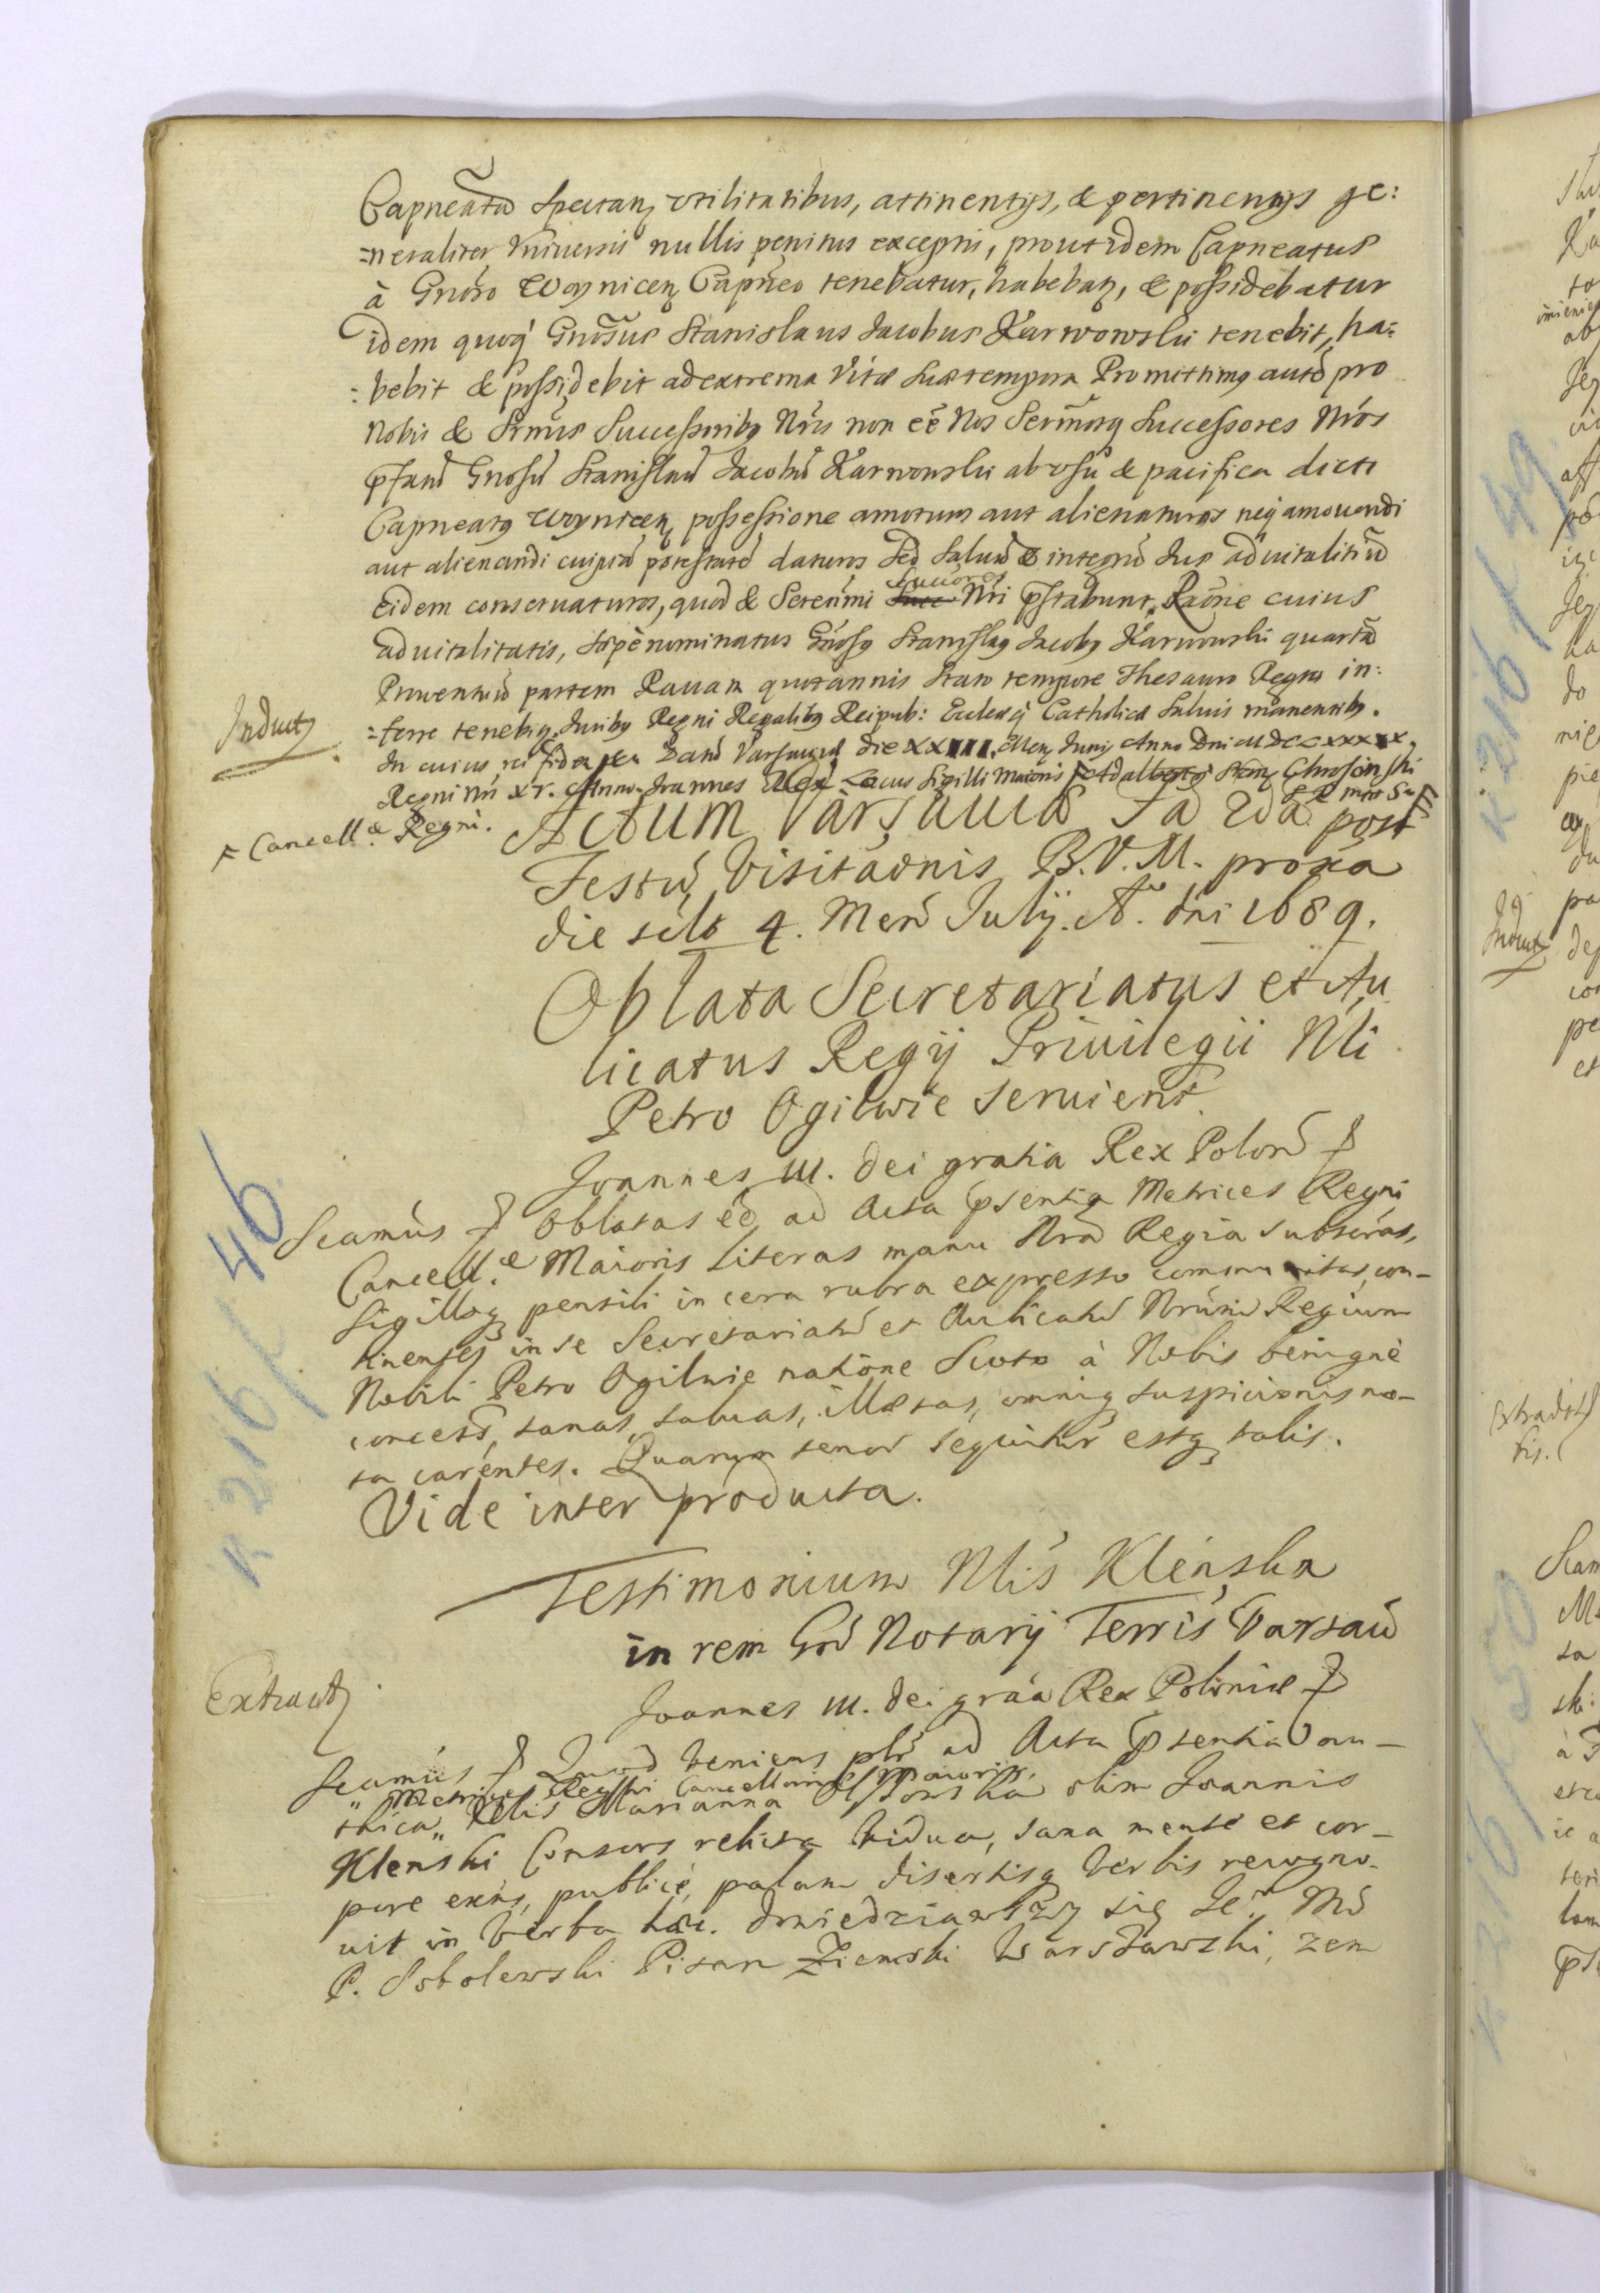 Capneatũ spectanz vtilitatibus, attinentijs, & pertinentijs ge:
=neraliter vniuersis nullis penitus exceptis, prout idem Capneatus
à Gnõso Woynicenz Capneo tenebatur, habebatz, & possidebatur
idem quoq Gnõsus Stanislaus Jacobus Karwowski tenebit, ha=
=bebit & possidebit ad extrema vitæ suæ tempora Promittimq autẽ pro
Nobis & Srmis Successoribq Nris non eẽ Nos Sermosq Successores Nros
pfatũ Gnosũ Stanislaũ Jacobũ Karwowski ab vsu & pacifica dicti
Capneatq Woynicenz possessione amoturos aut alienaturos neq amouendi
aut alienandi cuipiã potestatẽ daturos sed saluũ & integrũ Jus aduitalitiũ
Eidem conseruaturos, quod & Serenmi Succõres Nri pstabunt. Raõne cuius
aduitalitatis, sæpè nominatus Gnosq Stanislaq Jacobq Karwowski quartã
Prouentuũ partem Rauam quotannis stato tempore Thesauro Regni in:
=ferre tenebitq. Juribq Regni Regalibq Reipub: Eccleæq Catholicæ saluis manentibq.
In cuius rei fidem Datũ Varsauiæ die XXIIII. Menz Junij Anno Dni MDCLXXXIX.
Regni nri XV. Anno. Joannes Rex Locus Sigilli Maioris
Inductz
Cancell.æ Regni.
Actum Varsauiæ Fa 2da post
Festũ Visitaõnis B.V.M. proxa
die scilt 4. Mens July. Aº. dni 1689.
Oblata Secretariatus et Au
licatus Regij Priuilegii Nli
Petro Ogilwie seruient.
Joannes III. Dei gratia Rex Polonã
Scamũs Oblatas eẽ ad Acta psentia Metrices Regni
Cancell.æ Maioris Literas manu Nrã Regia subscras,
Sigilloqz pensili in cera rubra expresso communitas, con-
tinentes in se Secretariatũ et Aulicatũ Nrũm Regium
Nobili Petro Ogilwie natione Scoto à Nobis benignè
concess, sanas, saluas, illæsas, omniq suspicionis no-
ta carentes. Quarum tenor sequitur estqz talis.
Vide inter producta.
Testimonium Nlis Klenska
in rem Gnd Notarij Terris Varsau
Extractz
Joannes III. Dei graa Rex Poloniæ
Scamũs Quod veniens plr ad Acta psentia Vau-
"Metrices Regni Cancellariæ maioris.
thica" Nlis Marianna olim Joannis
Klenski Consors relicta vidua, sana mente et cor-
pore exñs, publicè, palam disertisq verbis recogno-
uit in Verba hæc. Dowiedziawszy się Je.º Mć
P. Sobolewski Pisarz Ziemski Warszawski, zem
K 216 / 46